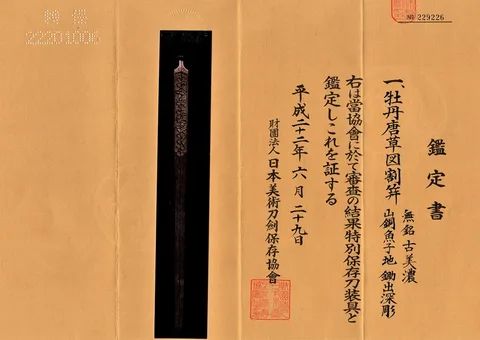 鑑定書
一、牡丹唐草図割笄
無銘 古美濃
山銅魚子地 鋤出深彫
右は當協會に於て審査の結果特別保存刀装具と
鑑定しこれを証する
平成二十二年六月二十九日
財團法人 日本美術刀劍保存協會
№ 229226
22201006